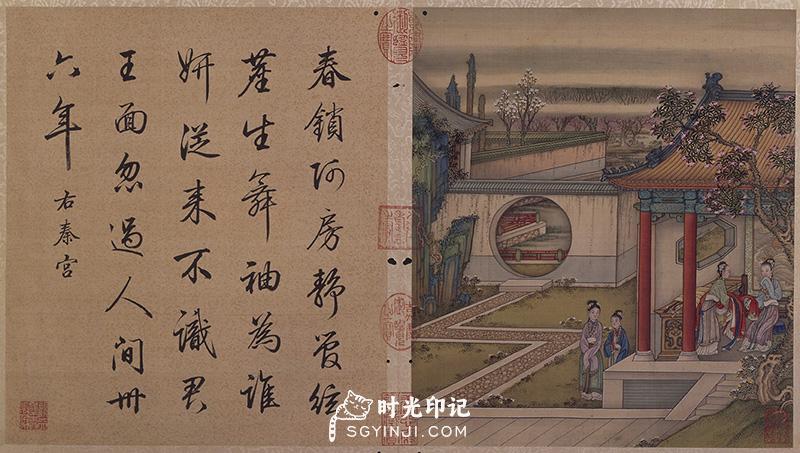 春鎖阿房靜管絃
塵生舞袖為誰
妍從来不識君
王面忽過人間卅
六年 右秦宮
时光印记
SGYINJI.COM